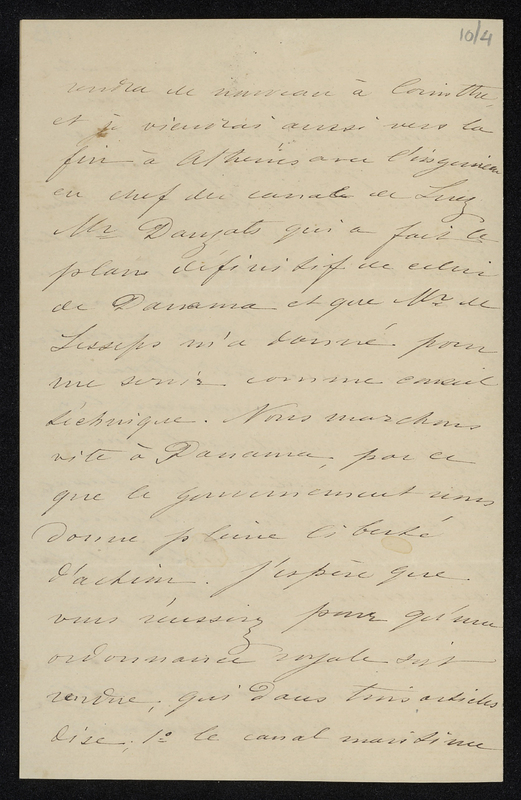 10/4
rendra de nouveau à Corinthe,
et je viendrai aussi vers la
fin à Athènes avec l'ingénieur
en chef du canal de Suez
Mr Dauzats qui a fait le
plans définitif de celui
de Panama et que Mr de
Lesseps m'a donné pour
me servir comme conseil
téchnique. Nous marchons
vite à Panama, par ce
que le gouvernement nous
donne pleine liberté
d'action. J'espère que
vous réussirez pour qu'une
ordonnance royale soit
rendue, qui dans trois articles
dise, 1o le canal maritime